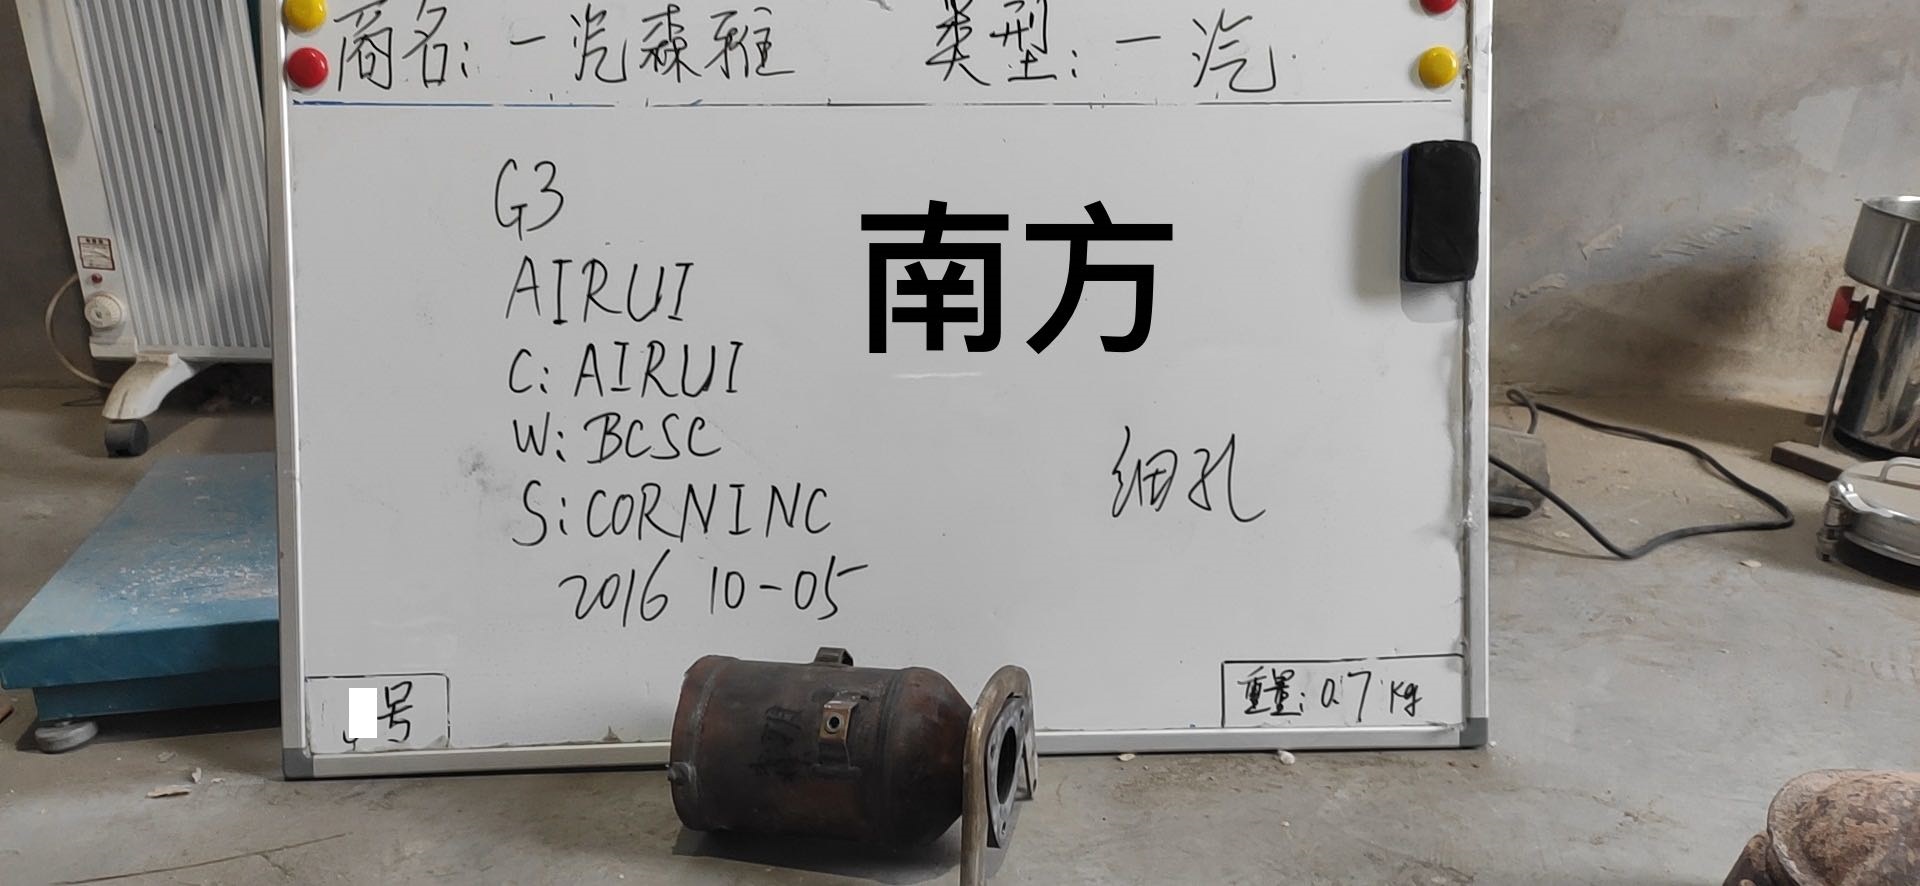 商名:一汽森雅 类型:一汽
G3
南方
AIRUI
C: AIRUI
W: BCSC
S: CORNINC
细孔
2016 10-05
号
重量: 0.7 kg